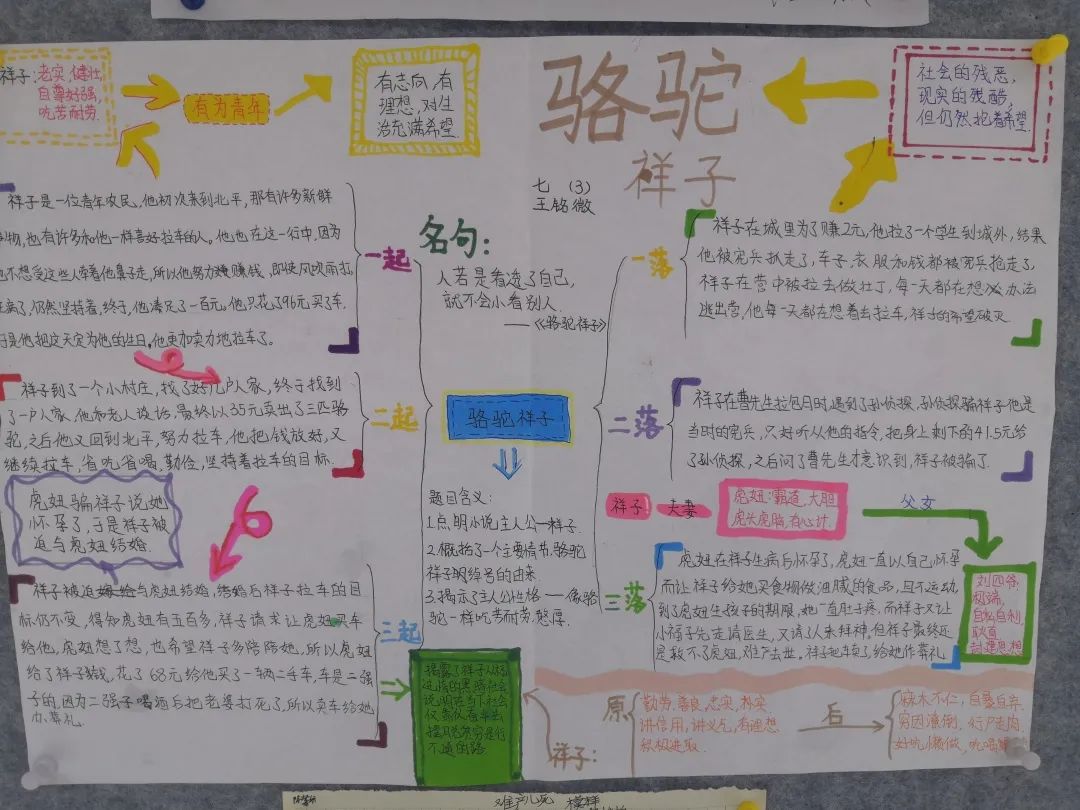 祥子:老实,健壮,
自尊好强,
吃苦耐劳.
有为青年
有志向,有
理想,对生
活充满希望.
骆驼
祥子
七 (3)
王铭微
社会的残恶,
现实的残酷,
但仍然抱着希望.
祥子是一位青年农民,他初次来到北平,那有许多新鲜
物,也有许多和他一样喜好拉车的人。他也在这一行中,因为
不想受这些人牵着他鼻子走,所以他努力赚钱,即使风吹雨打,
病了,仍然坚持着,终于,他凑足了一百元,他只花了96元买了车.
是他把这天定为他的生日,他更加卖力地拉车了。
一起
祥子到了一个小村庄,找了好几户人家,终于找到
了一户人家,他和老人说话,最终以35元卖出了三匹骆
驼,之后他又回到北平,努力拉车,他把钱放好,又
继续拉车,省吃省喝.勤俭,坚持着拉车的目标.
二起
虎妞骗祥子说她
怀孕了,于是祥子被
迫与虎妞结婚.
祥子被迫与虎妞结婚,结婚后祥子拉车的目
标仍不变,得知虎妞有五百多,祥子请求让虎妞买车
给他,虎妞想了想,也希望祥子多陪陪她,所以虎妞
给了祥子钱,花了68元给他买了一辆二手车,车是二强
子的,因为二强子喝酒后把老婆打死了,所以卖车给她
办葬礼.
三起
名句:
人若是看透了自己,
就不会小看别人.
——《骆驼祥子》
骆驼祥子
题目含义:
1.点明小说主人公—祥子.
2.概括了一个主要情节,骆驼
祥子明绰号的由来.
3.揭示了主人公性格——像骆
驼一样吃苦耐劳,憨厚.
一落
祥子在城里为了赚2元,他拉了一个学生到城外,结果
他被宪兵抓走了,车子、衣服和钱都被宪兵抢走了,
祥子在营中被拉去做壮丁,每一天都在想办法
逃出营,他每一天都在想着去拉车,祥子的希望破灭.
二落
祥子在曹先生拉包月时,遇到了孙侦探,孙侦探骗祥子他是
当时的宪兵,只好听从他的指令,把身上剩下的41.5元给
了孙侦探,之后问了曹先生才意识到,祥子被骗了.
祥子 夫妻
虎妞:霸道,大胆
虎头虎脑,有心计.
父女
刘四爷
极端,
自私自利,
耿直
封建思想
三落
虎妞在祥子生病后怀孕了,虎妞一直以自己怀孕
而让祥子给她买食物做油腻的食品,且不运动,
到了虎妞生孩子的期限,她一直肚子疼,而祥子又让
小福子先走请医生,又请了人来拜神,但祥子最终还
是救不了虎妞,难产去世。祥子把车卖了,给她作葬礼
祥子:
原
勤劳,善良,忠实,朴实
讲信用,讲义气,有理想.
积极进取.
后
麻木不仁,自暴自弃.
穷困潦倒,行尸走肉,
好吃懒做,吃喝嫖
难产儿死